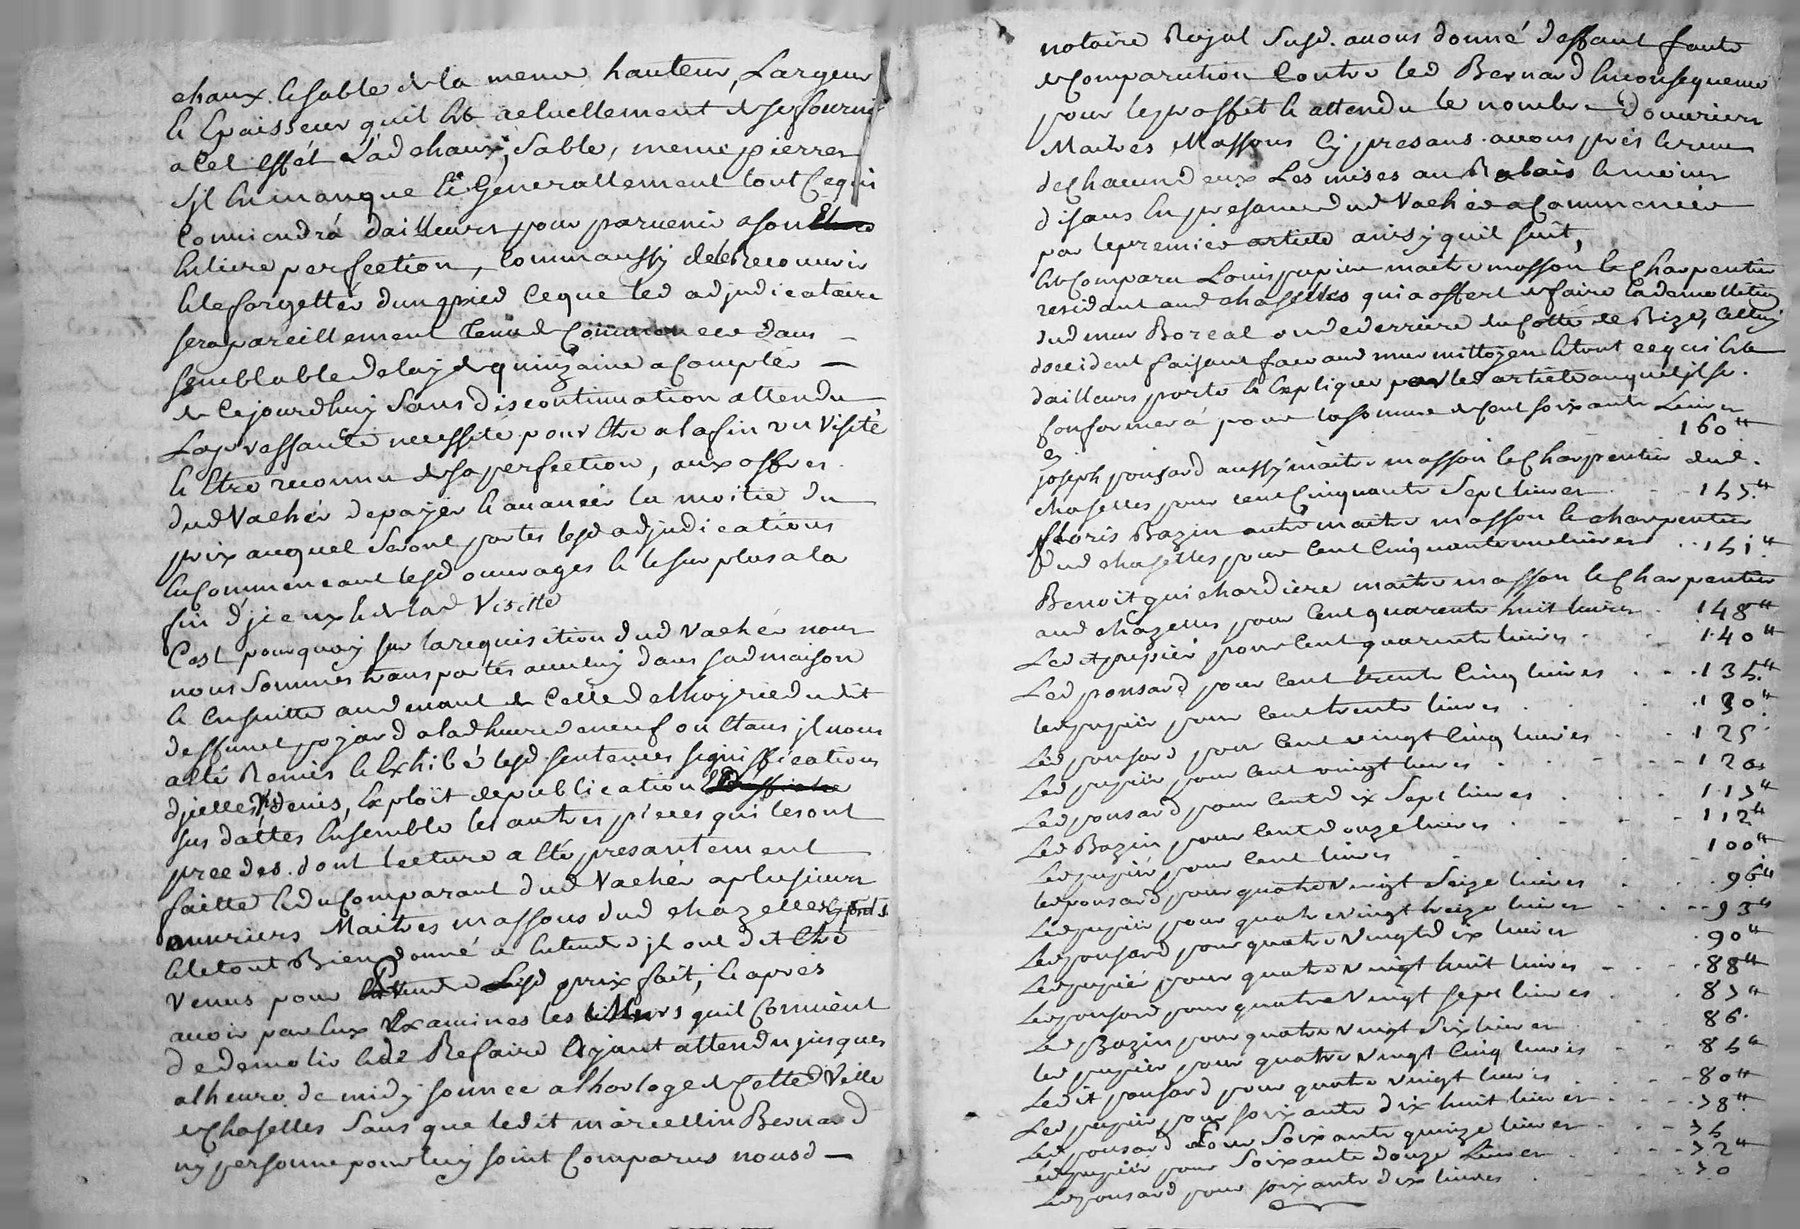 chaux. le sable de la meme hauteur, Largeur
le Epaisseur quil Est actuellement de se fournir
a Cet Effet Lad chaux, Sable, meme pierres
sjl En manque Et Generallement tout Ce qui
Conviendrá dailleurs pour parvenir a son
Entiere perfection, comm aussy de le Recouvrir
Et le forgetter dun pied Ce que led adjudicataire
sera pareillement tenu de Commancer dans
semblable delay de quinzaine a Compter
de Ce jourdhuy Sans discontinuation attendu
La pressante necessite pour Etre a la fin vu Visité
Et Etre reconnu de sa perfection, aux offres
dud Vacher de payer Et avancer la moitié du
prix auquel Seront portes lesd adjudications
En Commencant lesd ouvrages Et le surplus a la
fin d'jceux Et de lad Visitte
C'est pourquoy sur la requisition dud Vacher nous
nous Sommes transportés avec luy dans sad maison
Et Ensuitte au devant de Celle de lhoyrie dudit
deffunt pojard a lad heure de neuf ou Etans jl nous
a Eté Remis Et Exhibé lesd sentences significations
djcelles, Exploit de publication
sus dattes Ensemble les autres pieces qui les ont
precedes. dont lecture a Eté presantement
faitte Et du Comparant dud Vacher a plusieurs
ouvriers Maitres massons dud chazelles
Et le tout Bien donné a Entendre jls ont dit Etre
Venus pour Lesd prix fait, Et aprés
avoir par Eux Examinés les murs quil Convient
de demolir Et de Refaire Ayant attendu jusques
a lheure de midy sonnée a lhorloge de Cette Ville
de Chaselles Sans que ledit marcellin Bernard
ny personne pour luy soint Comparus nousd
notaire Royal Susd. avons donné deffaut faute
de Comparution Contre led Bernard En consequence
pour le proffit Et attendu le nombre Douvriers
Maitres Massons Cy presans avons pris Et recu
de Chacun deux Les mises au Rabais Et moins
disans En presance dud Vacher a Commencer
par le premier article ainsy quil suit,
Est Comparu Louis papier maitre masson Et Charpentier
residant aud chaselles qui a offert de faire la demolition
dud mur Boreal ou de derriere du Cotté de Bize, Celluy
doccident faisant face aud mur mittoyen Et tout ce qui Est
dailleurs porté Et Expliqué par led article auquel jl se
Conformerá pour la somme de Cent soixante Livres
160 ₶
joseph ponsard aussy maitre masson Et Charpentier dud.
chaselles pour cent Cinquante Sept livres 157 ₶
floris Bazin autre maitre masson Et charpentier
dud chaselles pour Cent Cinquante une livres 151 ₶
Benoit guichardiere maitre masson Et Charpentier
aud chazelles pour Cent quarente huit livres 148 ₶
Ledit papier pour Cent quarente livres 140 ₶
Led ponsard pour Cent trente Cinq livres 135 ₶
led papier pour Cent trente livres 130 ₶
Led ponsard pour Cent vingt Cinq livres 125
Led papier pour Cent vingt livres 120
Led ponsard pour Cent dix Sept livres 117 ₶
Led Bazin pour Cent douze livres 112 ₶
Led papier pour Cent livres 100 ₶
led ponsard pour quatre Vingt Seize livres 96 ₶
Led papier pour quatre Vingt treize livres 93 ₶
Led ponsard pour quatre Vingt dix livres 90 ₶
Led papier pour quatre vingt huit livres 88 ₶
Led ponsard pour quatre Vingt sept livres 87 ₶
Led Bazin pour quatre vingt Six livres 86
led papier pour quatre Vingt Cinq livres 85 ₶
Ledit ponsard pour quatre vingt livres 80 ₶
Led papier pour soixante dix huit livres 78 ₶
Led ponsard Pour Soixante quinze livres 75
led papier pour Soixante douze Livres 72 ₶
Led ponsard pour soixante dix livres 70